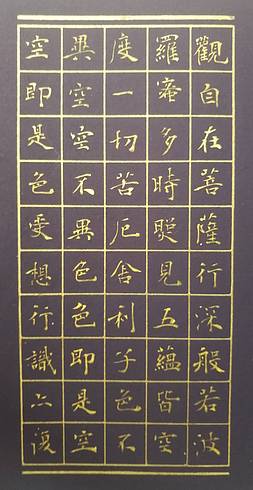 觀自在菩薩行深般若波
羅蜜多時照見五蘊皆空
度一切苦厄舍利子色不
異空空不異色色即是空
空即是色受想行識亦復